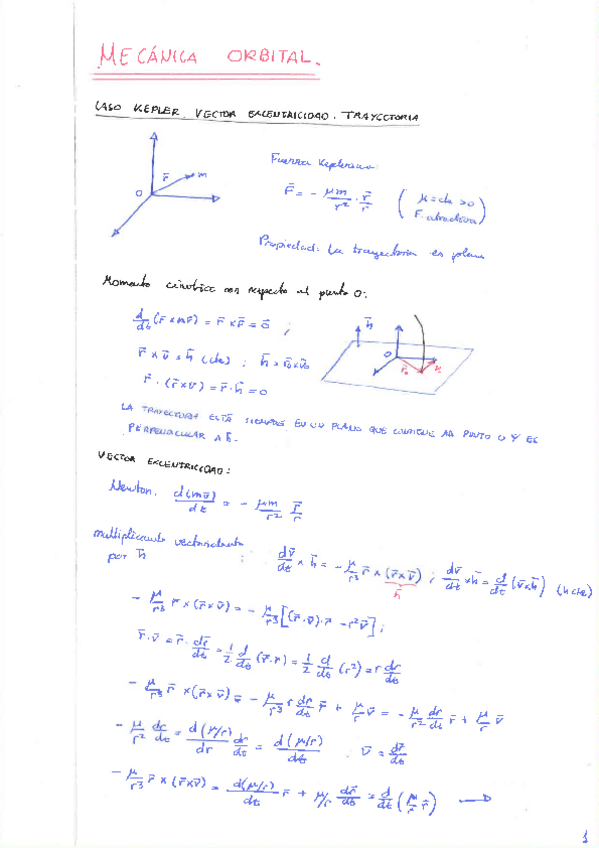 MECÁNICA ORBITAL.
CASO KEPLER. VECTOR EXCENTRICIDAD. TRAYECTORIA
Fuerza Kepleriana:
r̄ m
O
F̄ = - μm/r² · r̄/r ( μ = cte >0
F. atractiva )
Propiedad: La trayectoria es plana
Momento cinético con respecto al punto O:
d/dt (r̄ × mv̄) = r̄ × F̄ = 0̄ ;
r̄ × v̄ = h̄ (cte) ; h̄ = r̄₀ × v̄₀
r̄ · (r̄ × v̄) = r̄ · h̄ = 0
h̄
O r̄₀ v̄₀
LA TRAYECTORIA ESTÁ SIEMPRE EN UN PLANO QUE CONTIENE AL PUNTO O Y ES
PERPENDICULAR A h̄.
VECTOR EXCENTRICIDAD:
Newton. d(mv̄)/dt = - μm/r² r̄/r
multiplicando vectorialmente
por h̄ : dv̄/dt × h̄ = - μ/r³ r̄ × (r̄ × v̄) ; dv̄/dt × h̄ = d/dt (v̄ × h̄) (h cte)
h̄
- μ/r³ r̄ × (r̄ × v̄) = - μ/r³ [(r̄ · v̄) · r̄ - r² v̄] ;
r̄ · v̄ = r̄ · dr̄/dt = 1/2 d/dt (r̄ · r̄) = 1/2 d/dt (r²) = r dr/dt
- μ/r³ r̄ × (r̄ × v̄) = - μ/r³ r dr/dt r̄ + μ/r v̄ = - μ/r² dr/dt r̄ + μ/r v̄
- μ/r² dr/dt = d(μ/r)/dr dr/dt = d(μ/r)/dt ; v̄ = dr̄/dt
- μ/r³ r̄ × (r̄ × v̄) = d(μ/r)/dt r̄ + μ/r dr̄/dt = d/dt (μ/r r̄) →
1